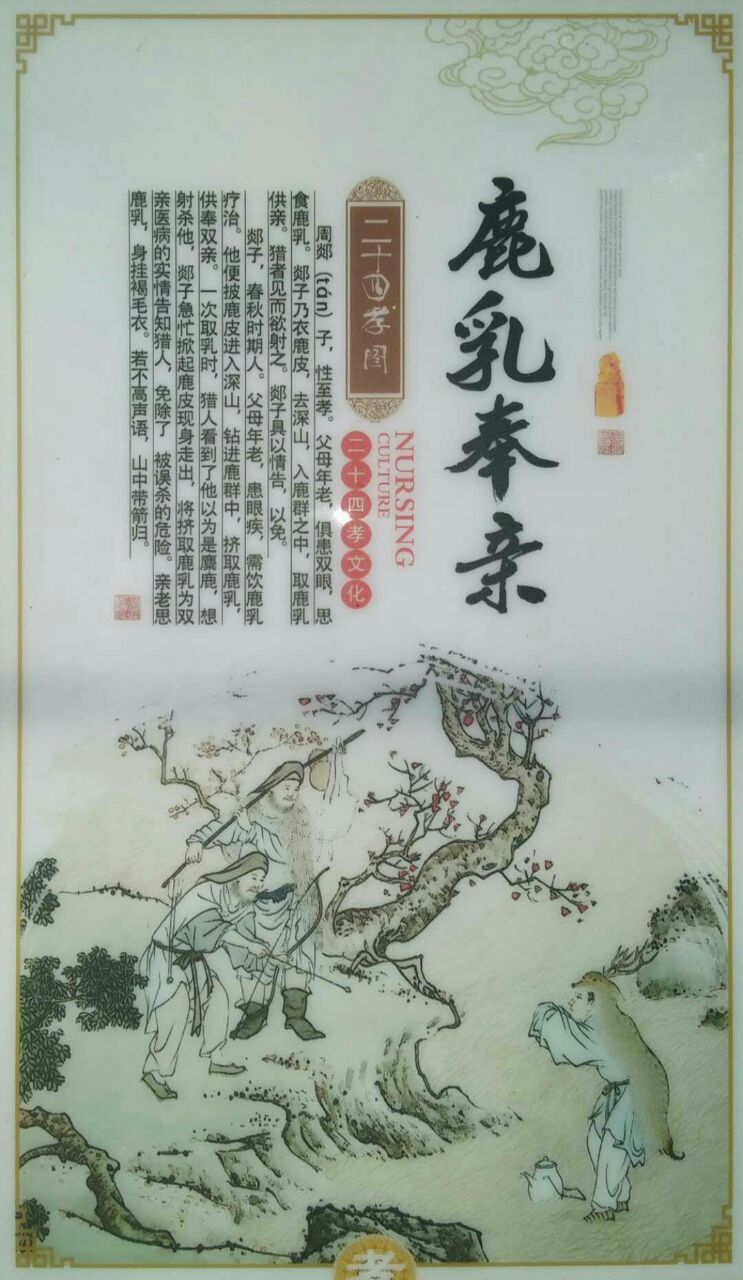 鹿乳奉亲
二十四孝图
NURSING
CULTURE
二十四孝文化
周郯（tán）子，性至孝。父母年老，俱患双眼，思
食鹿乳。郯子乃衣鹿皮，去深山，入鹿群之中，取鹿乳
供亲。猎者见而欲射之。郯子具以情告，以免。
郯子，春秋时期人。父母年老，患眼疾，需饮鹿乳
疗治。他便披鹿皮进入深山，钻进鹿群中，挤取鹿乳，
供奉双亲。一次取乳时，猎人看到了他以为是麋鹿，想
射杀他，郯子急忙掀起鹿皮现身走出，将挤取鹿乳为双
亲医病的实情告知猎人，免除了 被误杀的危险。亲老思
鹿乳，身挂褐毛衣。若不高声语，山中带箭归。
孝